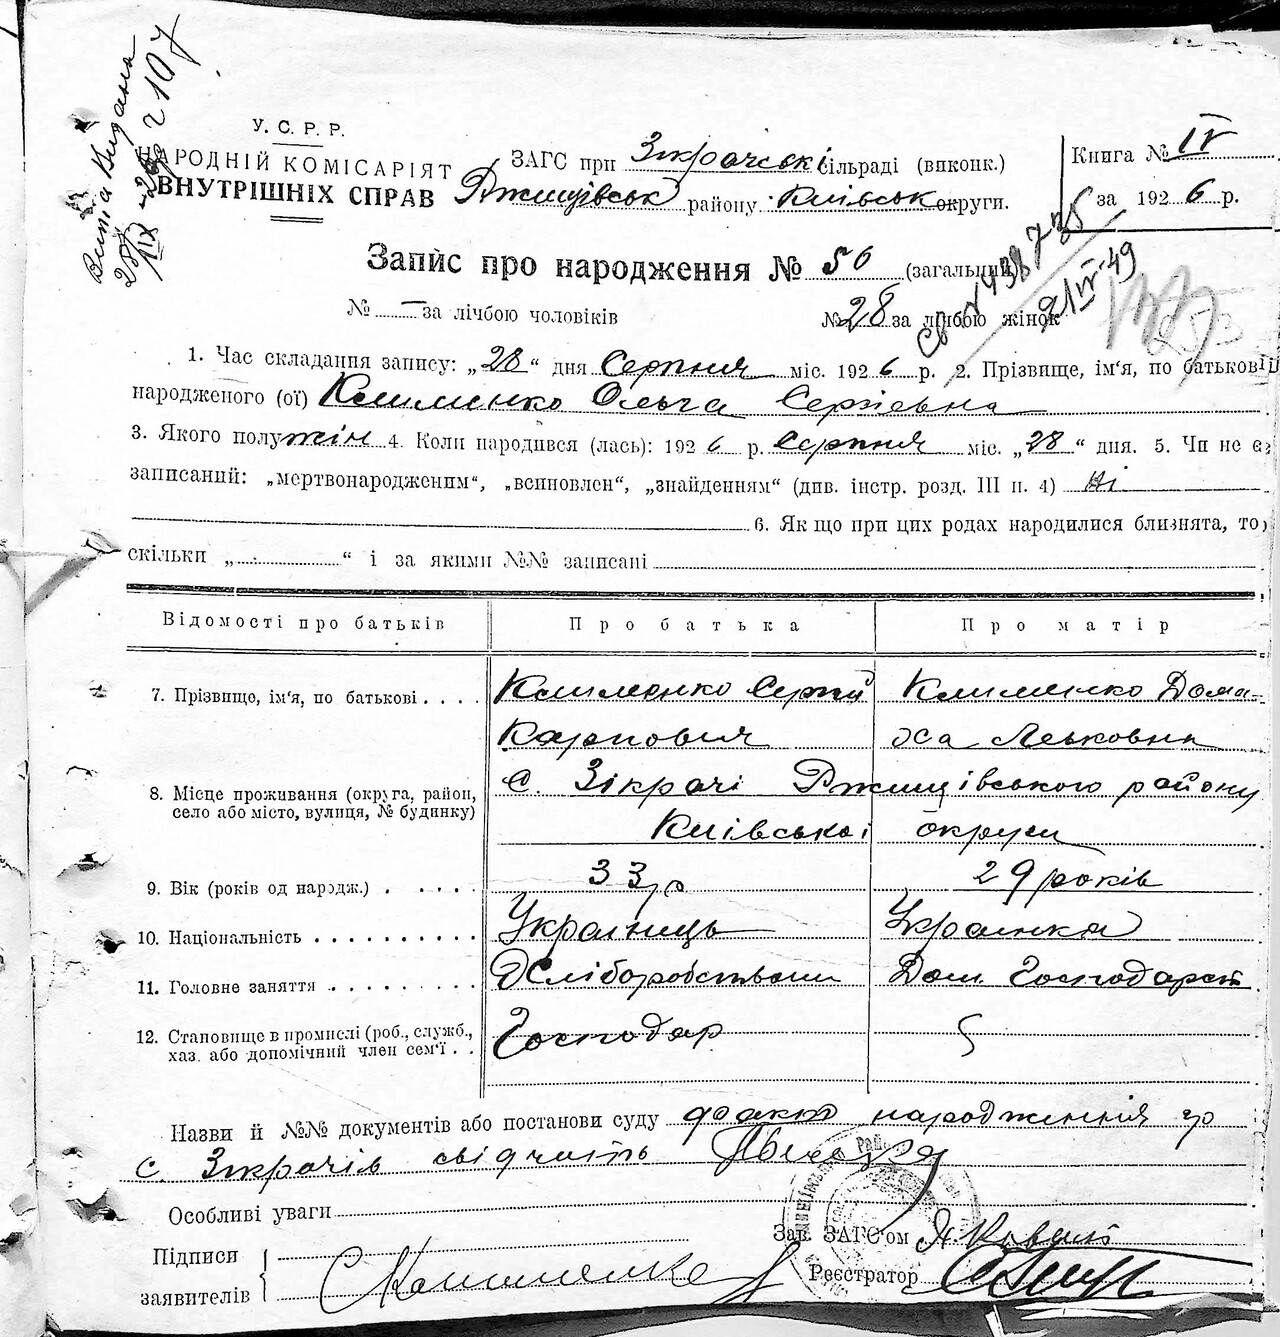 У. С. Р. Р.
НАРОДНІЙ КОМІСАРІЯТ
ВНУТРІШНІХ СПРАВ
ЗАГС при Зікрачівські сільраді (виконк.)
Ржищівськ району Київськ округи.
Книга № IV
за 192 6 р.
Запис про народження № 56 (загальний)
№ — за лічбою чоловіків № 28 за лічбою жінок
1. Час складання запису: „28“ дня Серпня міс. 192 6 р. 2. Прізвище, ім'я, по батькові
народженого (ої) Клименко Ольга Сергіевна
3. Якого полу жін 4. Коли народився (лась): 192 6 р. Серпня міс. „28“ дня. 5. Чи не є
записаний: „мертвонародженим“, „всиновлен“, „знайденням“ (див. інстр. розд. III п. 4) ні
6. Як що при цих родах народилися близнята, то
скільки „ “ і за якими №№ записані
Відомості про батьків Про батька Про матір
7. Прізвище, ім'я, по батькові . . . . Клименко Сергій Клименко Дома-
Карпович ха Леьковна
8. Місце проживання (округа, район, с. Зікрачі Ржищівського району
село або місто, вулиця, № будинку) Київської округи
9. Вік (років од народж.) . . . . . 33 р. 29 років
10. Національність . . . . . . . . . . Украінець Украинка
11. Головне заняття . . . . . . . . . Хліборобством Дом. Господарст
12. Становище в промислі (роб., служб., Господар
хаз. або допомічний член сем'ї . .
Назви й №№ документів або постанови суду факт народження гр
с. Зікрачів свідчить
Особливі уваги
Підписи
заявителів С Клименко
Зав. ЗАГС'ом
Реєстратор